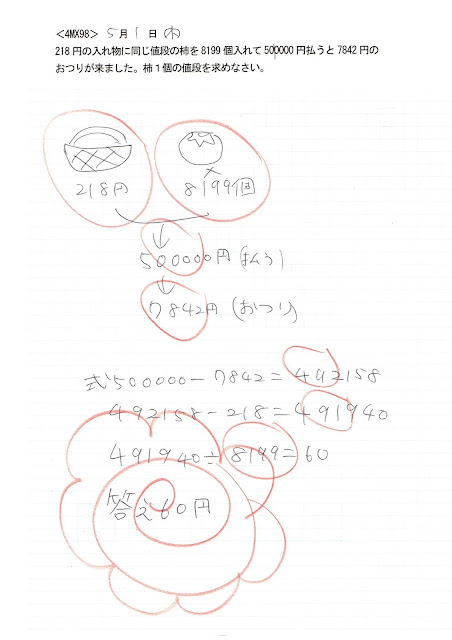 <4MX98> 5月1日(木)
218円の入れ物に同じ値段の柿を8199個入れて500000円払うと7842円の
おつりが来ました。柿1個の値段を求めなさい。
218円
8199個
500000円(払う)
7842円(おつり)
式500000-7842=492158
492158-218=491940
491940÷8199=60
答え60円